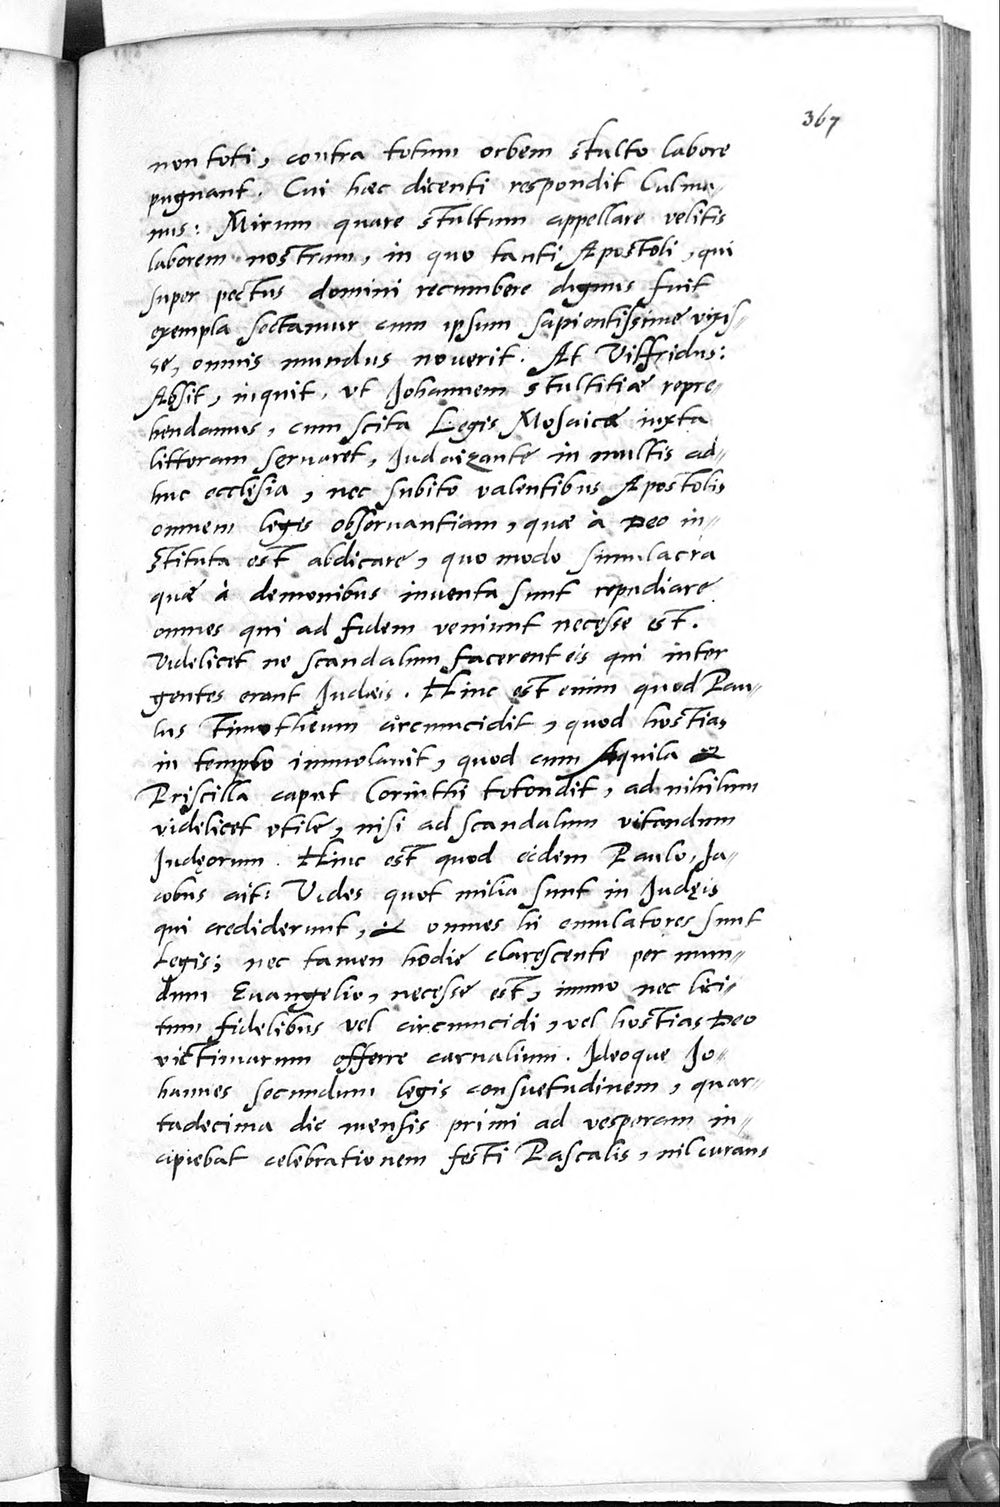 367
non toti, contra totum orbem stulto labore
pugnant. Cui hæc dicenti respondit Culma-
nus: Mirum quare stultum appellare velitis
laborem nostrum, in quo tanti Apostoli, qui
super pectus domini recumbere dignus fuit
exempla sectamur cum ipsum sapientissime vixis-
se, omnis mundus noverit. At Viffridus:
Absit, inquit, ut Johannem stultitiæ repre-
hendamus, cum scita Legis Mosaicæ iuxta
litteram servaret, Judaizante in multis ad-
huc ecclesia, nec subito valentibus Apostolis
omnem legis observantiam, quæ à Deo in-
stituta est abdicare, quo modo simulacra
quæ à demonibus inventa sunt repudiare
omnes qui ad fidem veniunt necesse est.
Videlicet ne scandalum facerent eis qui inter
gentes erant Judæis. Hinc est enim quod Pau-
lus Timotheum circumcidit, quod hostias
in templo immolavit, quod cum Aquila &
Priscilla caput Corinthi totondit, ad nihilum
videlicet utile, nisi ad scandalum vitandum
Judęorum. Hinc est quod eidem Paulo, Ja-
cobus ait: Vides quot milia sunt in Judęis
qui crediderunt, & omnes hi emulatores sunt
Legis; nec tamen hodie clarescente per mun-
dum Evangelio, necesse est, immo nec lici-
tum fidelibus vel circumcidi, vel hostias Deo
victimarum offerre carnalium. Ideoque Jo-
hannes secundum legis consuetudinem, quar-
tadecima die mensis primi ad vesperam in-
cipiebat celebrationem festi Pascalis, nil curans